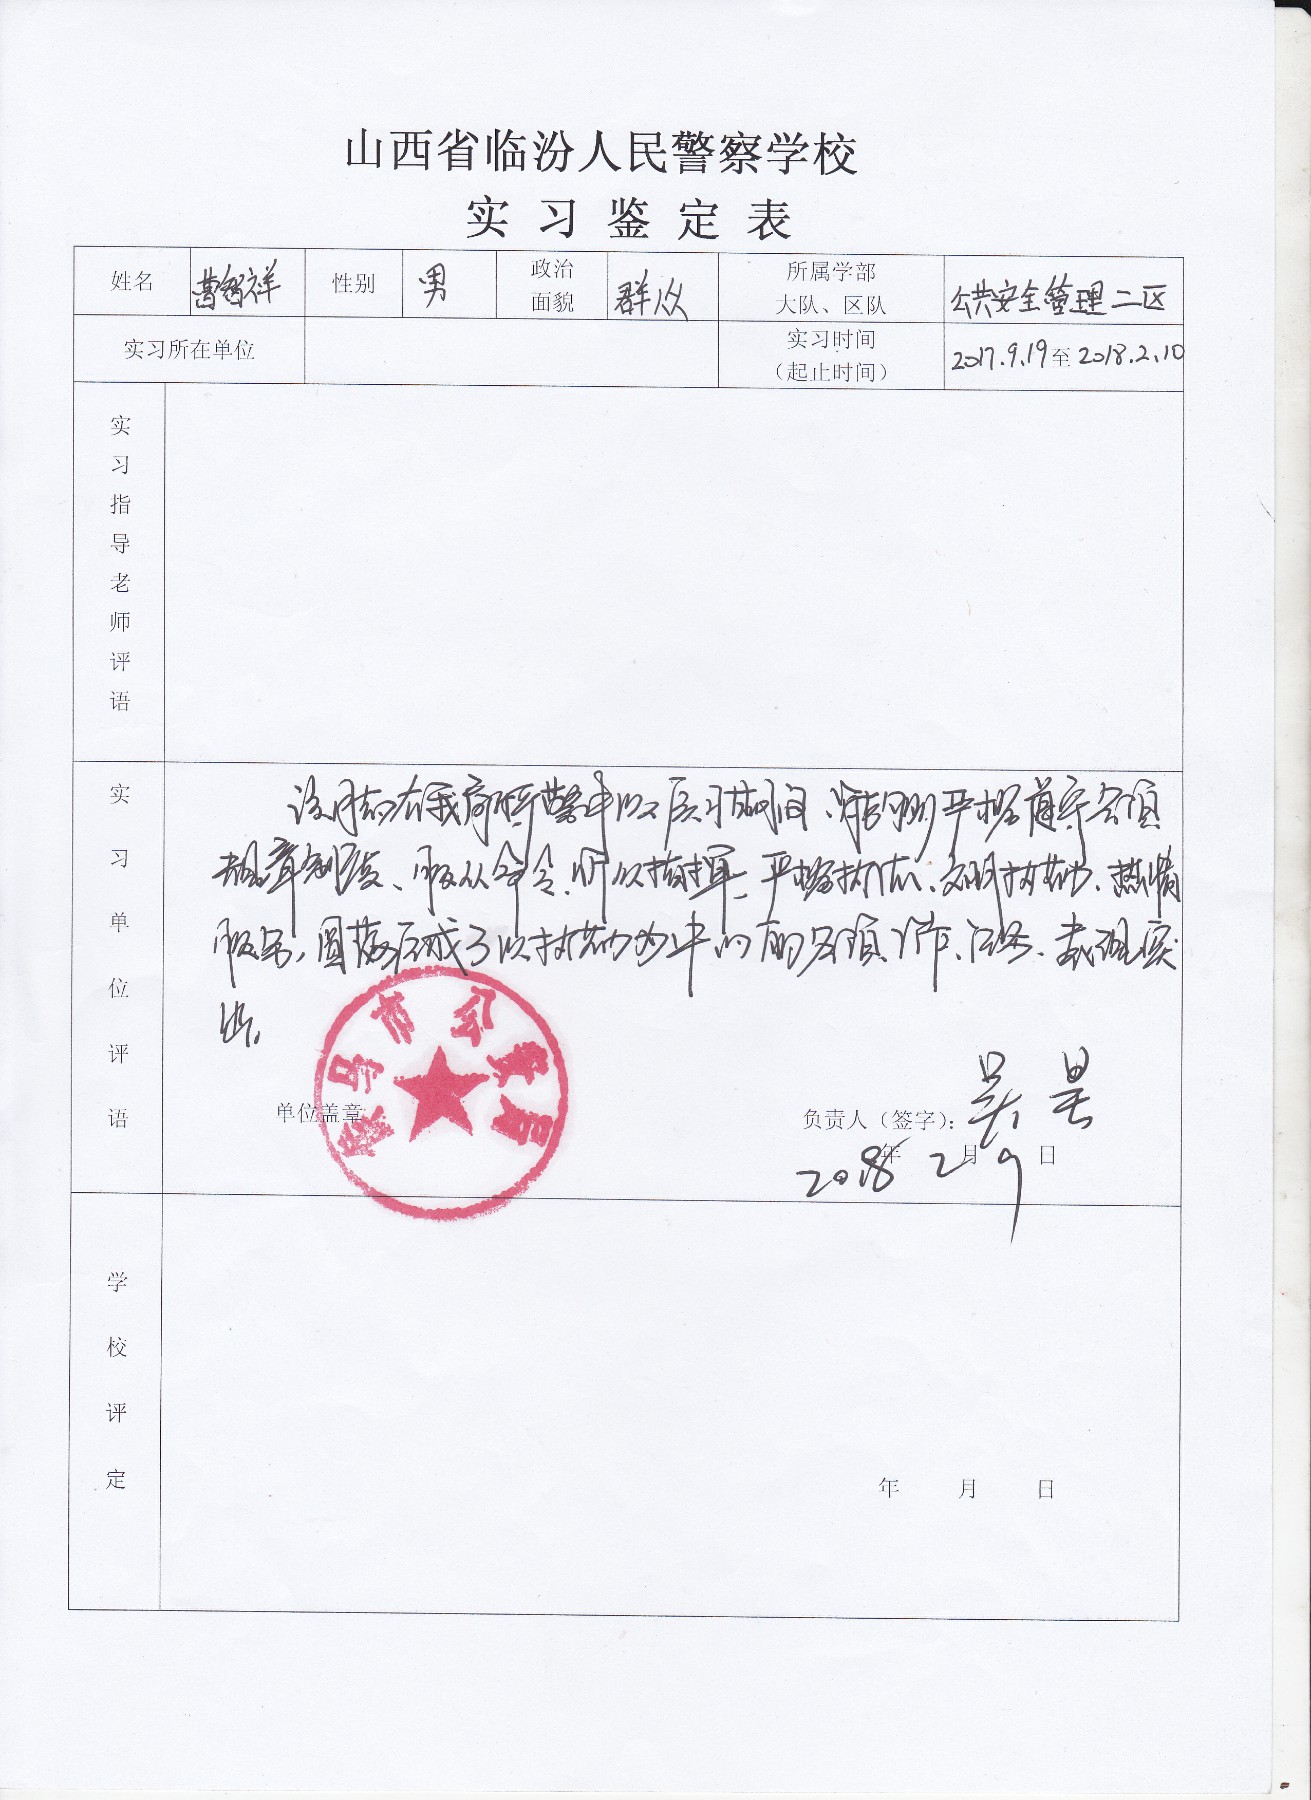 山西省临汾人民警察学校
实习鉴定表
姓名 曹智祥 性别 男 政治面貌 群众 所属学部大队、区队 公共安全管理二区
实习所在单位 实习时间（起止时间） 2017.9.19至2018.2.10
实习指导老师评语
实习单位评语
该同志在我局特警中队实习期间，能够严格遵守各项
规章制度、服从命令、听从指挥、严格执法、文明执勤、热情
服务，圆满完成了以执勤为中心的各项工作、任务、表现突
出。
市公安局
单位盖章
负责人（签字）：吴昊
2018年2月9日
学校评定
年 月 日